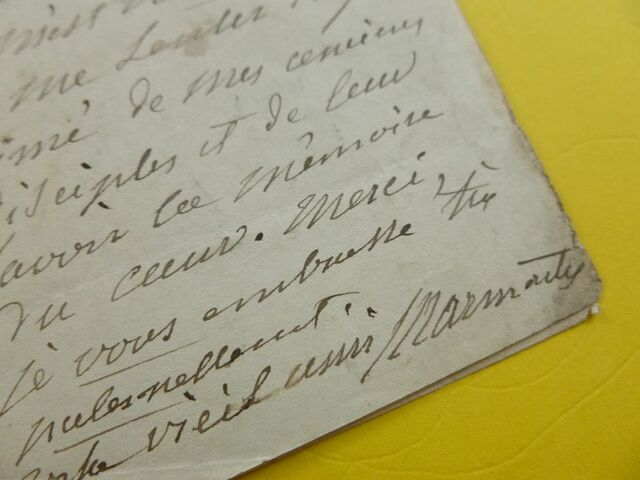 me sentir
aimé de mes anciens
disciples et de leur
savoir la mémoire
du cœur. Merci,
je vous embrasse très
paternellement.
votre vieil ami Marmontel